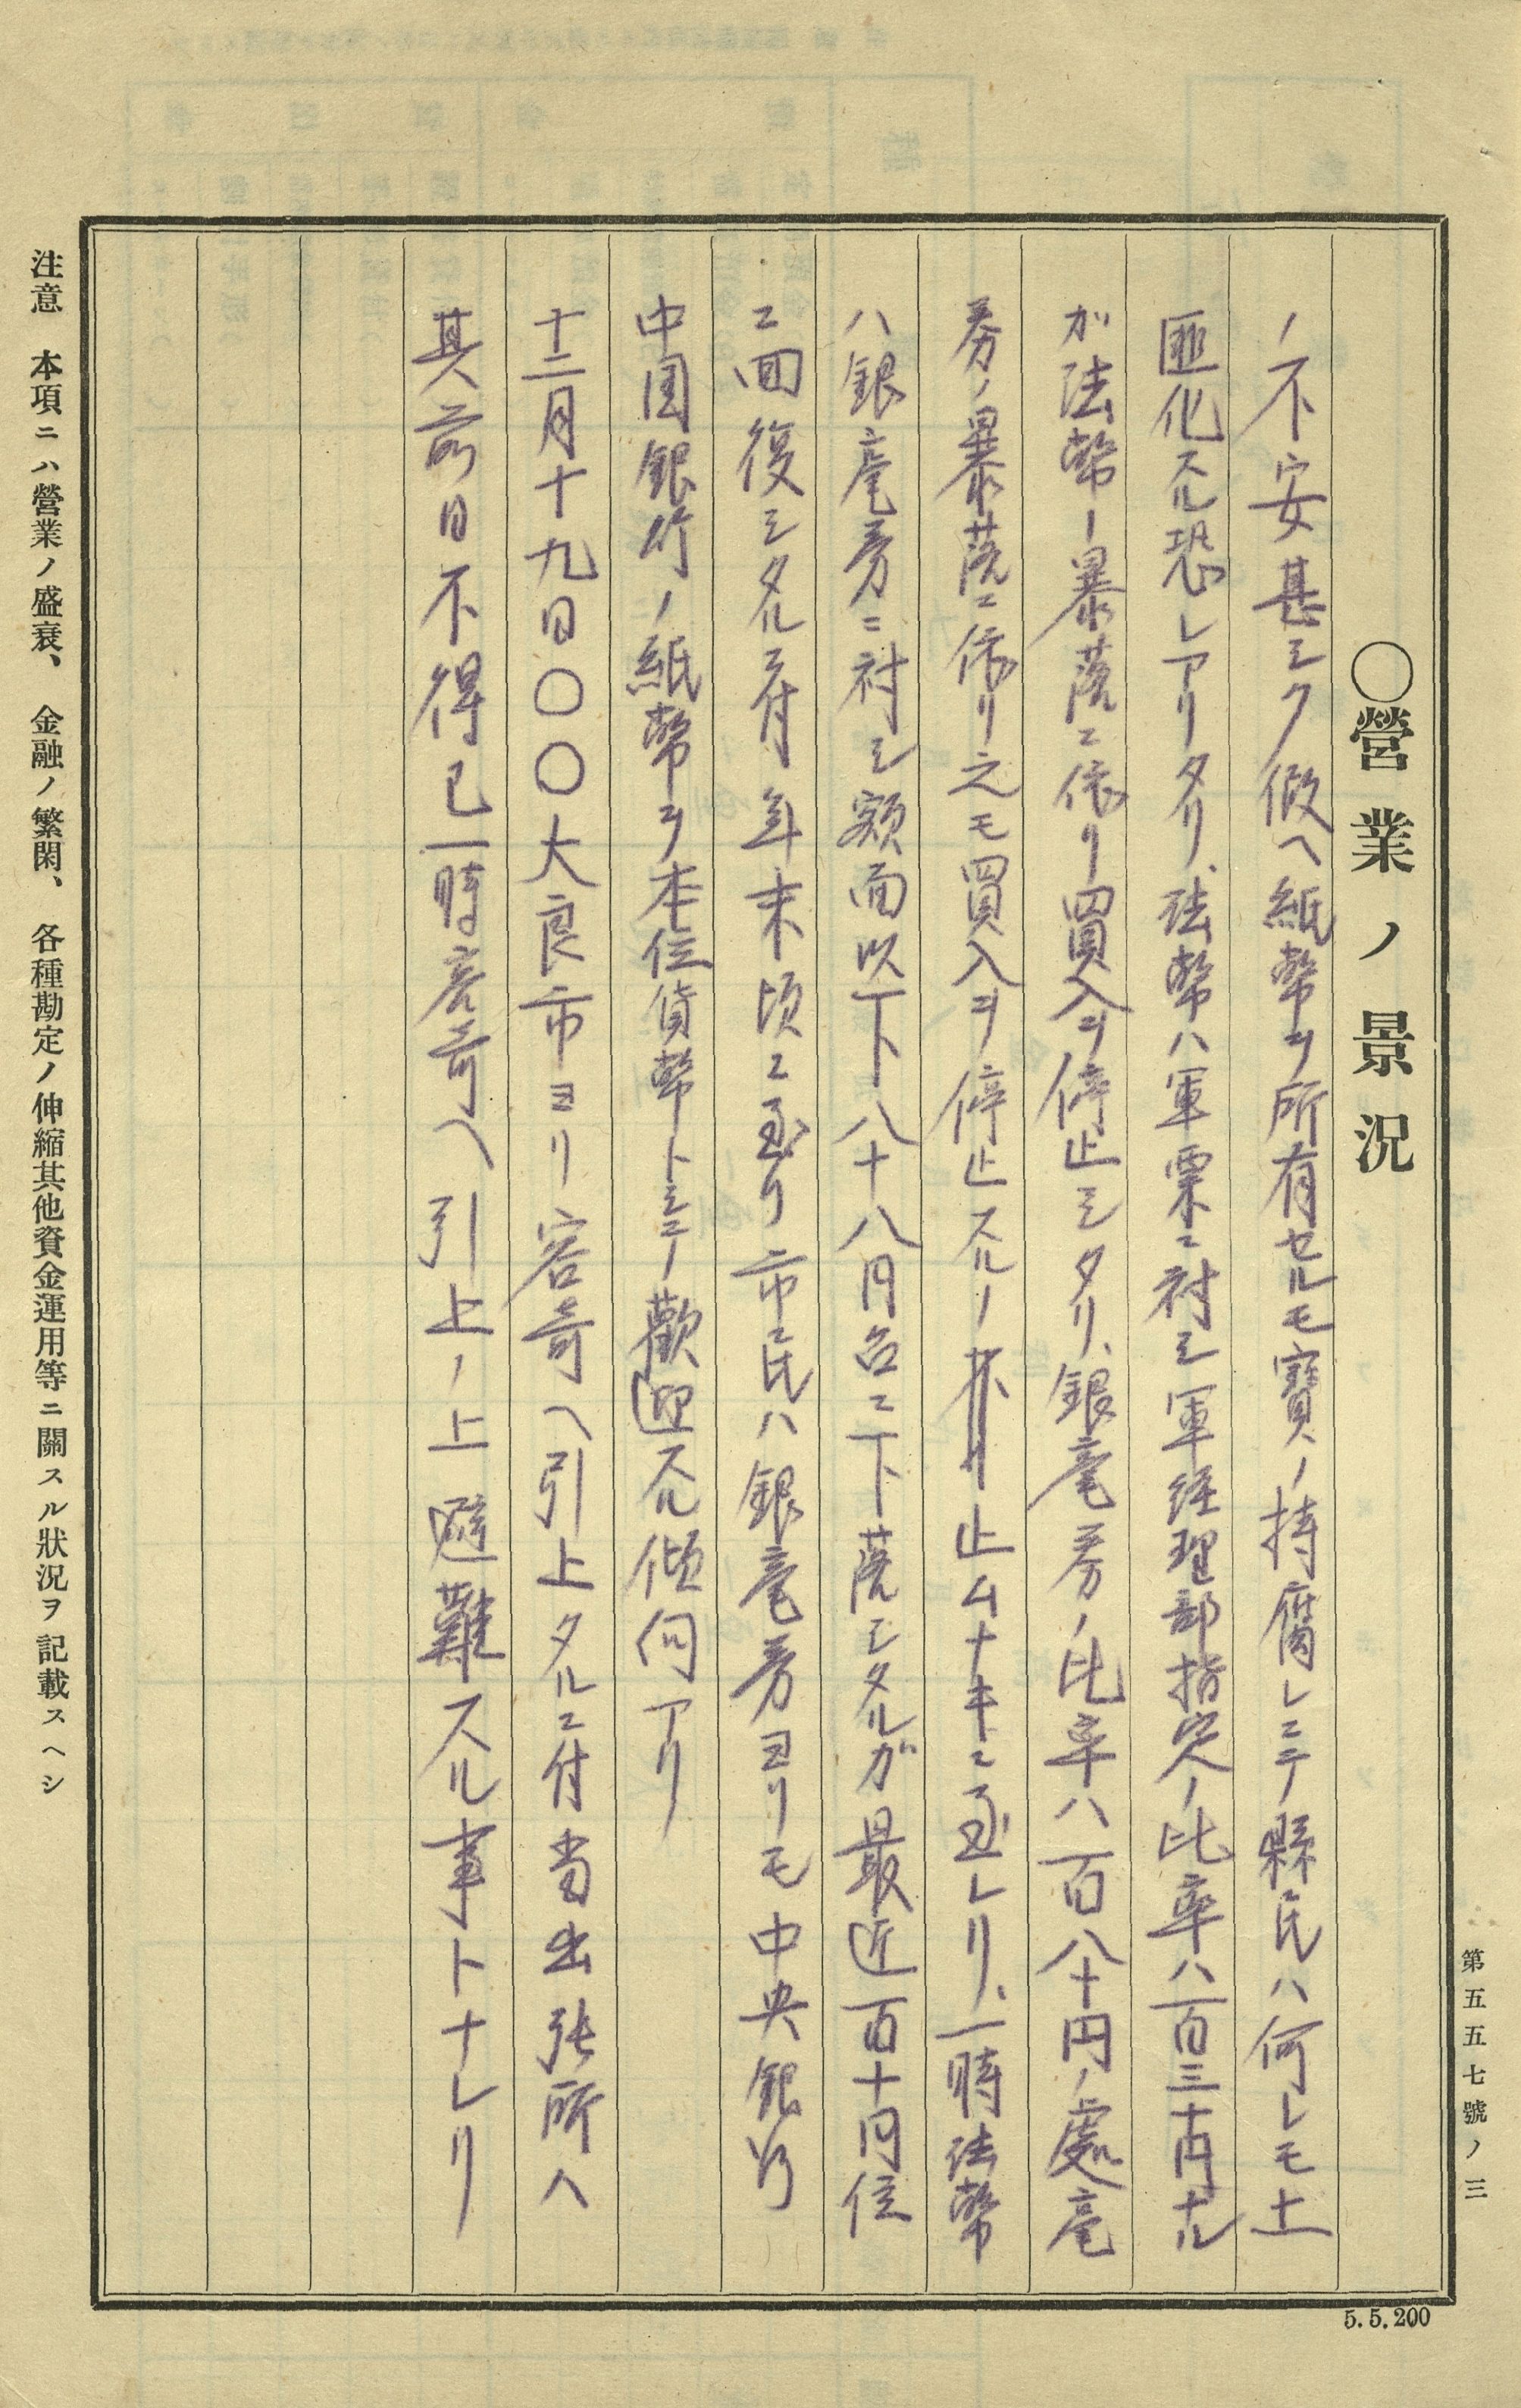 第五五七號ノ三
〇營業ノ景況
ノ不安甚シク假ヘ紙幣ヲ所有セルモ寶ノ持腐レニテ縣民ハ何レモ土
匪化スル恐レアリタリ、法幣ハ軍票ニ対シ軍経理部指定ノ比率ハ百三十円ナル
ガ法幣ノ暴落ニ依リ買入ヲ停止シタリ、銀毫券ノ比率ハ百八十円ノ處毫
券ノ暴落ニ依リ之モ買入ヲ停止スルノ止ムナキニ至レリ、一時法幣
ハ銀毫券ニ対シ額面以下八十八円台ニ下落シタルガ最近百十円位
ニ回復シタル 年末頃ニ至リ市民ハ銀毫券ヨリモ中央銀行
中国銀行ノ紙幣ヲ本位貨幣トシテ歡迎スル傾向アリ
十二月十九日〇〇大良市ヨリ容奇ヘ引上タルニ付当出張所ハ
其前日不得已一時容奇ヘ引上ノ上避難スル事トナレリ
注意 本項ニハ營業ノ盛衰、金融ノ繁閑、各種勘定ノ伸縮其他資金運用等ニ關スル狀況ヲ記載スヘシ
5.5.200